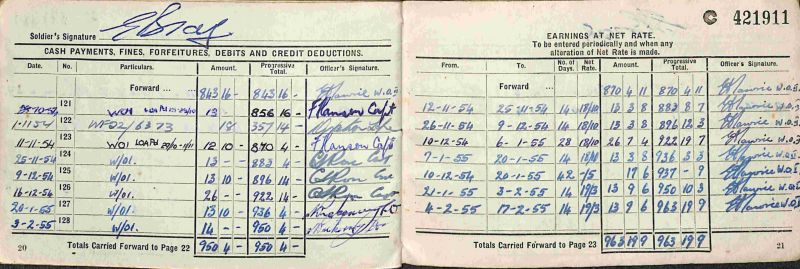 Soldier's Signature
CASH PAYMENTS, FINES, FORFEITURES, DEBITS AND CREDIT DEDUCTIONS.
Date. No. Particulars. Amount. Progressive Total. Officer's Signature.
Forward ... 843 16 - 843 16 -
121 W01 13 - 856 16 -
1-11-54 122 18
11-11-54 123 W01 12 10 -
25-11-54 124 W/01. 13 - - 883 4 -
9-12-54 125 W/01. 13 10 - 896 14 -
16-12-54 126 W/01. 26 - - 922 14 -
20-1-55 127 W/01. 13 10 - 936 4 -
3-2-55 128 W/01. 14 - - 950 4 -
Totals Carried Forward to Page 22 950 4 - 950 4 -
20
C 421911
EARNINGS AT NET RATE.
To be entered periodically and when any
alteration of Net Rate is made.
From. To. No. of Days. Net Rate. Amount. Progressive Total. Officer's Signature.
Forward ... 870 4 11 870 4 11
12-11-54 25-11-54 14 18/10 13 3 8 883 8 7
26-11-54 9-12-54 14 18/10 13 3 8 896 12 3
10-12-54 6-1-55 28 18/10 26 7 4 922 19 7
7-1-55 20-1-55 14 18/10 13 3 8 936 3 3
10-12-54 20-1-55 42 -/5 17 6 937 - 9
21-1-55 3-2-55 14 19/3 13 9 6 950 10 3
4-2-55 17-2-55 14 19/3 13 9 6 963 19 9
Totals Carried Forward to Page 23 963 19 9 963 19 9
21